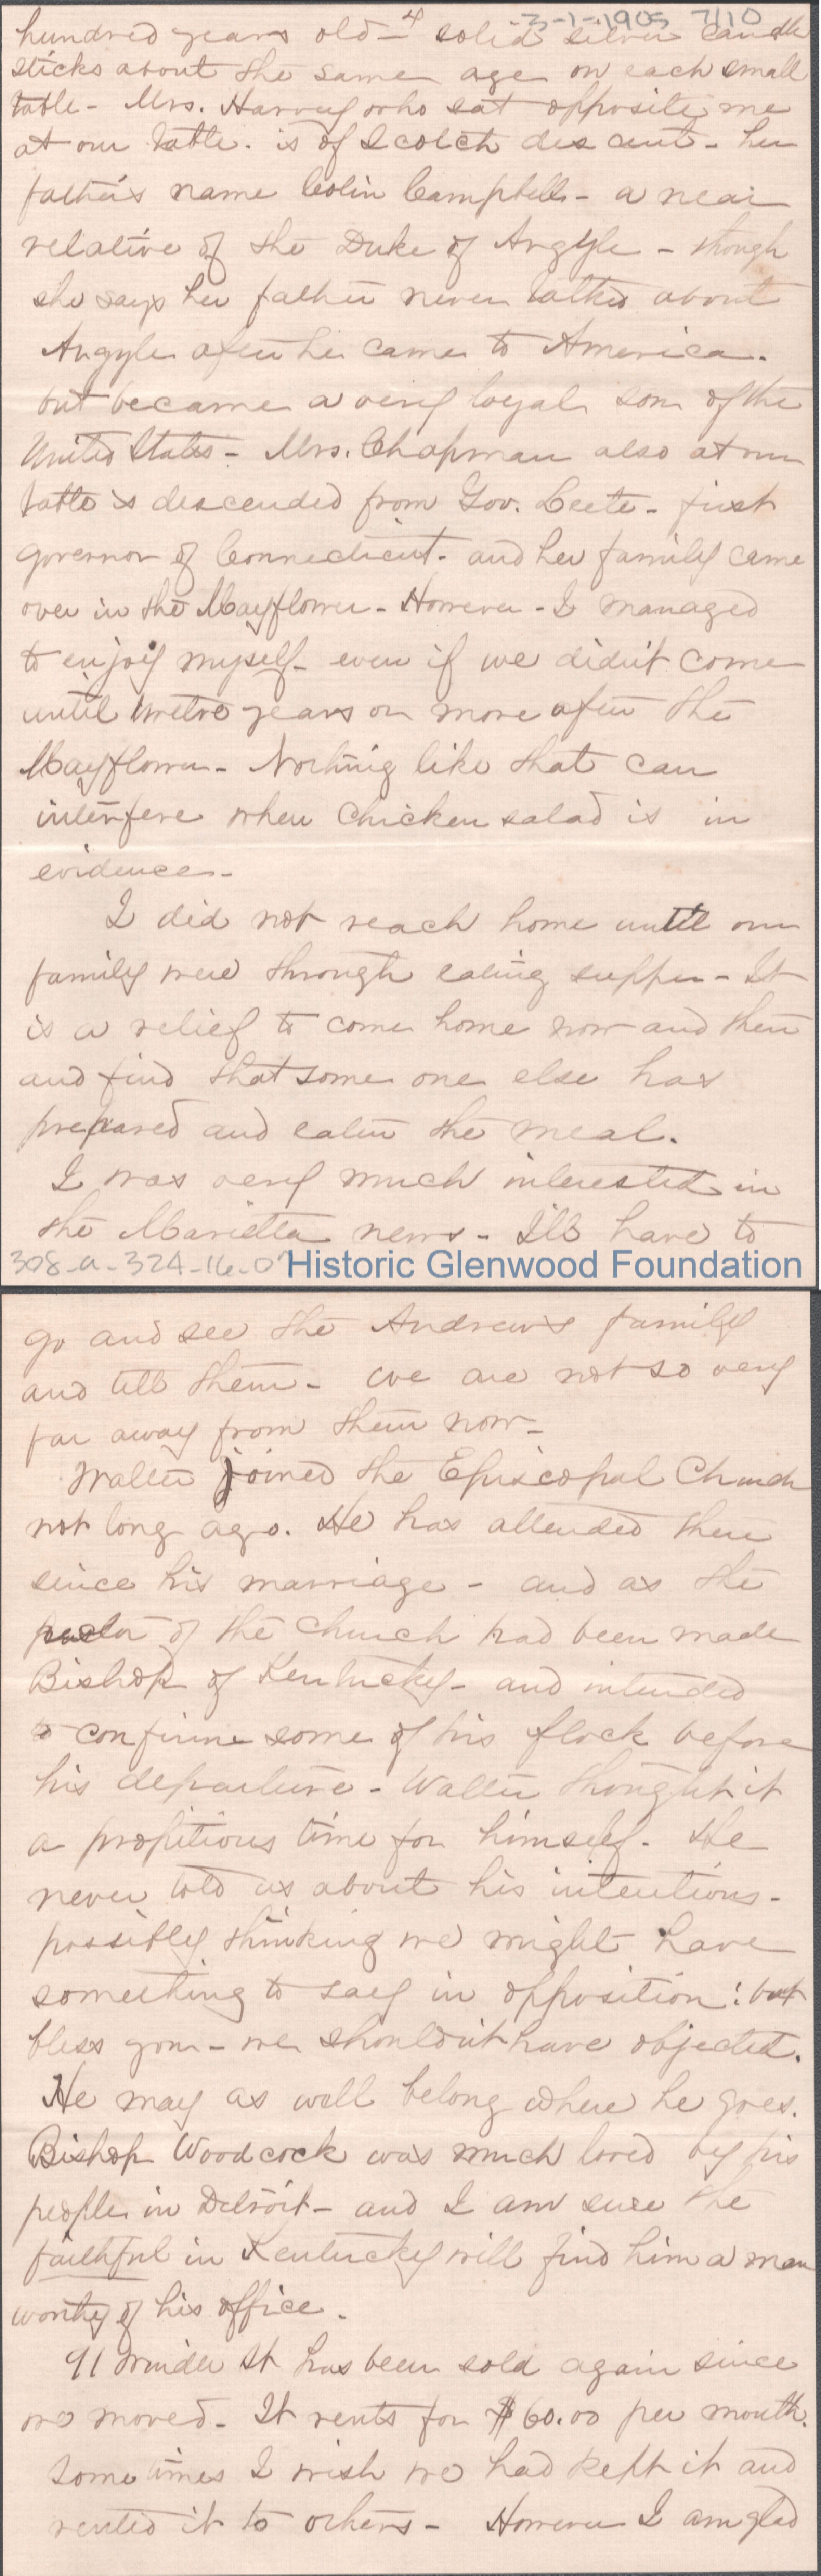 3-1-1905 7110
hundred years old - 4 solid silver candle
sticks about the same age on each small
table - Mrs. Harvey who sat opposite me
at our table. is of Scotch descent - her
father's name Colin Campbell - a near
relative of the Duke of Argyle - though
she says her father never talked about
Argyle after he came to America.
but became a very loyal son of the
United States - Mrs. Chapman also at our
table is descended from Gov. Leete - first
governor of Connecticut - and her family came
over in the Mayflower - However - I managed
to enjoy myself - even if we didn't come
until twelve years or more after the
Mayflower - Nothing like that can
interfere when chicken salad is in
evidence -
I did not reach home until our
family were through eating supper - It
is a relief to come home now and then
and find that some one else has
prepared and eaten the meal.
I was very much interested in
the Marietta news - I'll have to
308-a-324-16-0
Historic Glenwood Foundation
go and see the Andrews family
and tell them - we are not so very
far away from them now -
Walter joined the Episcopal Church
not long ago. He has attended there
since his marriage - and as the
of the church had been made
Bishop of Kentucky - and intended
to confirm some of his flock before
his departure - Walter thought it
a propitious time for himself. He
never told us about his intentions -
possibly thinking we might have
something to say in opposition: but
bless you - we shouldn't have objected.
He may as well belong where he goes.
Bishop Woodcock was much loved by his
people in Detroit - and I am sure the
faithful in Kentucky will find him a man
worthy of his office.
91 Winder St has been sold again since
we moved - It rents for $60.00 per month.
Sometimes I wish we had kept it and
rented it to others - However I am glad